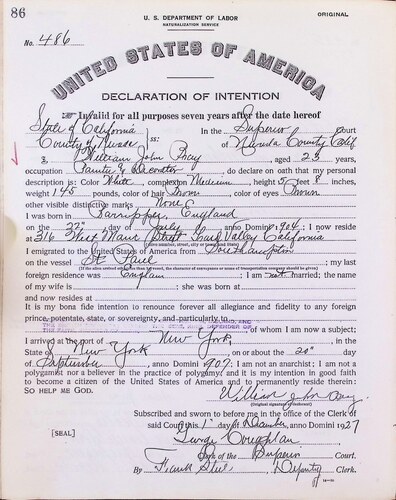 86
U. S. DEPARTMENT OF LABOR
NATURALIZATION SERVICE
ORIGINAL
No. 486
UNITED STATES OF AMERICA
DECLARATION OF INTENTION
Invalid for all purposes seven years after the date hereof
State of California
County of Nevada
ss:
In the Superior Court
of Nevada County Calif
I, William John Bray, aged 23 years,
occupation Painter & Decorator, do declare on oath that my personal
description is: Color White, complexion Medium, height 5 feet 8 inches,
weight 148 pounds, color of hair Brown, color of eyes Brown
other visible distinctive marks None
I was born in England
on the day of July, anno Domini 1904; I now reside
at 316 West Main Street Grass Valley California
I emigrated to the United States of America from Southampton
on the vessel St Paul; my last
foreign residence was England; I am not married; the name
of my wife is ; she was born at
and now resides at
It is my bona fide intention to renounce forever all allegiance and fidelity to any foreign
prince, potentate, state, or sovereignty, and particularly to
of whom I am now a subject;
I arrived at the port of New York, in the
State of New York, on or about the 20" day
of September, anno Domini 1907; I am not an anarchist; I am not a
polygamist nor a believer in the practice of polygamy; and it is my intention in good faith
to become a citizen of the United States of America and to permanently reside therein:
SO HELP ME GOD.
William John Bray.
(Original signature of declarant)
Subscribed and sworn to before me in the office of the Clerk of
said Court this 1" day of December, anno Domini 1927
[SEAL]
George Coughlan
Clerk of the Superior Court.
By Frank Steel, Deputy Clerk.